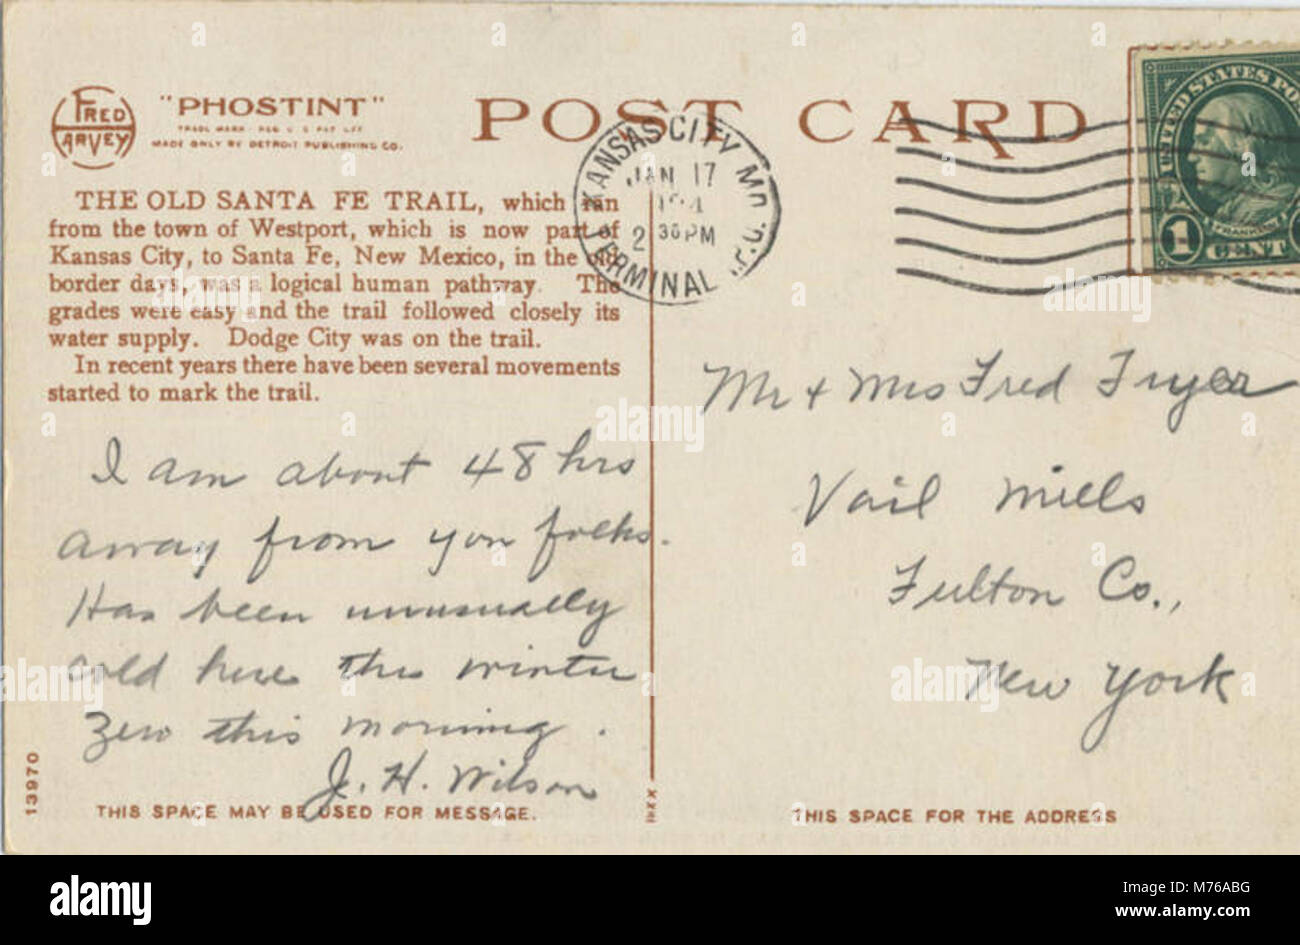 FRED
HARVEY
"PHOSTINT"
TRADE MARK REG U S PAT OFF
MADE ONLY BY DETROIT PUBLISHING CO.
POST CARD
KANSAS CITY MO. P.O.
JAN 17
2 30 PM
TERMINAL
UNITED STATES PO
FRANKLIN
1 CENT
THE OLD SANTA FE TRAIL, which ran
from the town of Westport, which is now part of
Kansas City, to Santa Fe, New Mexico, in the old
border days, was a logical human pathway. The
grades were easy and the trail followed closely its
water supply. Dodge City was on the trail.
In recent years there have been several movements
started to mark the trail.
I am about 48 hrs
away from you folks.
Has been unusually
cold here this winter
zero this morning.
J. H. Wilson
Mr + Mrs Fred Fryer
Vail Mills
Fulton Co.,
New York
13970
THIS SPACE MAY BE USED FOR MESSAGE.
THIS SPACE FOR THE ADDRESS
alamy
alamy
Image ID: M76ABG
www.alamy.com